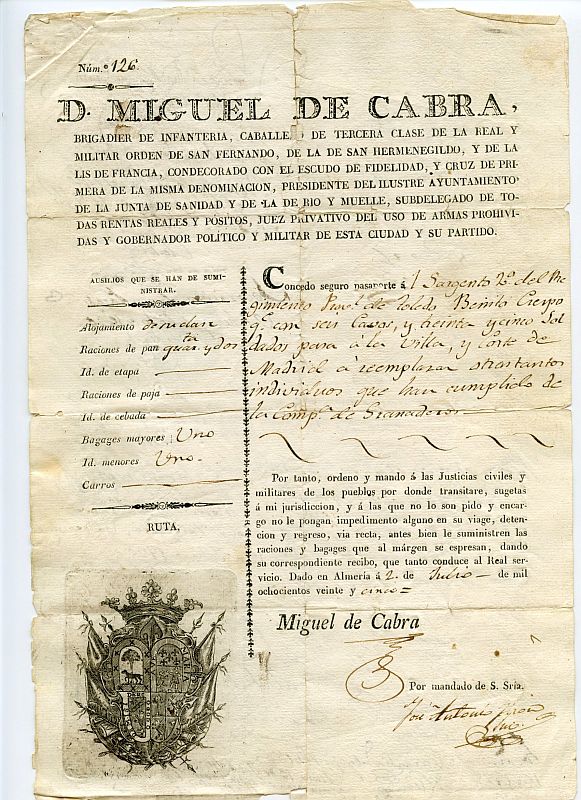 Núm.º 126.
D. MIGUEL DE CABRA,
BRIGADIER DE INFANTERIA, CABALLE O DE TERCERA CLASE DE LA REAL Y
MILITAR ORDEN DE SAN FERNANDO, DE LA DE SAN HERMENEGILDO, Y DE LA
LIS DE FRANCIA, CONDECORADO CON EL ESCUDO DE FIDELIDAD, Y CRUZ DE PRI-
MERA DE LA MISMA DENOMINACION, PRESIDENTE DEL ILUSTRE AYUNTAMIENTO
DE LA JUNTA DE SANIDAD Y DE LA DE RIO Y MUELLE, SUBDELEGADO DE TO-
DAS RENTAS REALES Y PÓSITOS, JUEZ PRIVATIVO DEL USO DE ARMAS PROHIVI-
DAS Y GOBERNADOR POLÍTICO Y MILITAR DE ESTA CIUDAD Y SU PARTIDO.
AUSILJOS QUE SE HAN DE SUMI-
NISTRAR.
Alojamiento
Raciones de pan quarta y dos
Id. de etapa
Raciones de paja
Id. de cebada
Bagages mayores Uno
Id. menores Uno
Carros
RUTA.
Concedo seguro pasaporte á l Sargento 2º del Re
gimiento Provl de Toledo Benito Crespo
qe con seis Cavos, y treinta y cinco Sol
dados pasa á la Villa, y Corte de
Madrid á reemplazar otros tantos
individuos que han cumplido de
la Compª de Granaderos
Por tanto, ordeno y mando á las Justicias civiles y
militares de los pueblos por donde transitare, sugetas
á mi jurisdiccion, y á las que no lo son pido y encar-
go no le pongan impedimento alguno en su viage, deten-
cion y regreso, via recta, antes bien le suministren las
raciones y bagages que al márgen se espresan, dando
su correspondiente recibo, que tanto conduce al Real ser-
vicio. Dado en Almería á 2. de Julio de mil
ochocientos veinte y cinco
Miguel de Cabra
Por mandado de S. Sría.
José Antonio